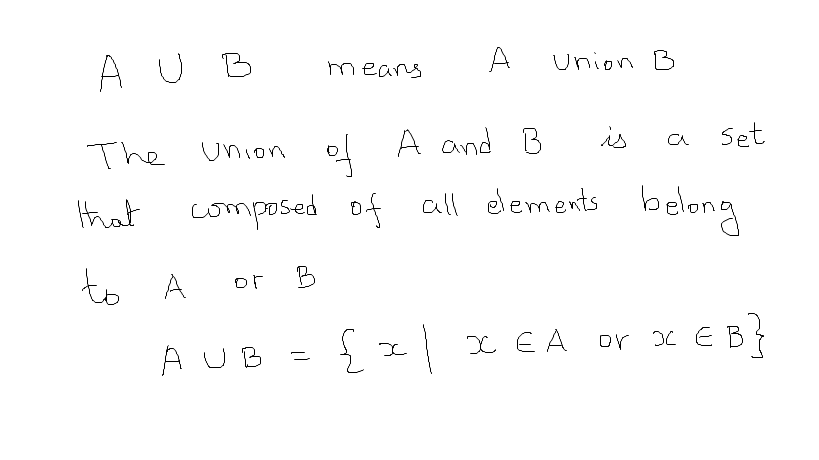 A ∪ B means A union B
The union of A and B is a set
that composed of all elements belong
to A or B
A ∪ B = { x | x ∈ A or x ∈ B}